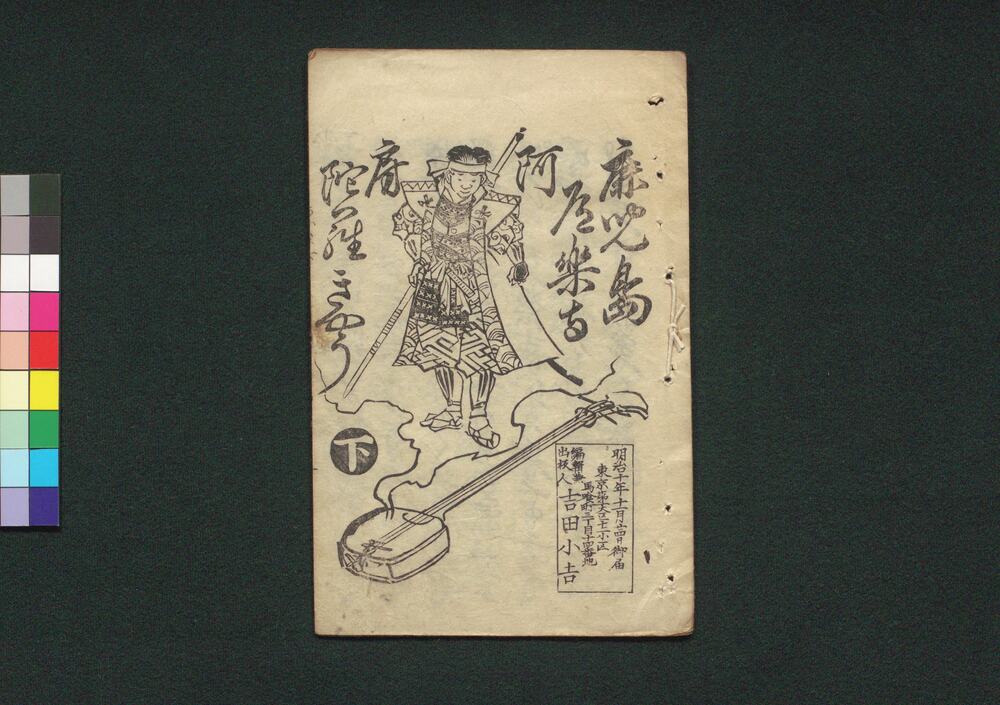 鹿児島
屋樂古
阿
府
陀羅
きやう
下
明治十年十一月十四日御届
東京第大区十二小区
馬喰町三丁目十四番地
編輯兼
出板人
吉田小吉